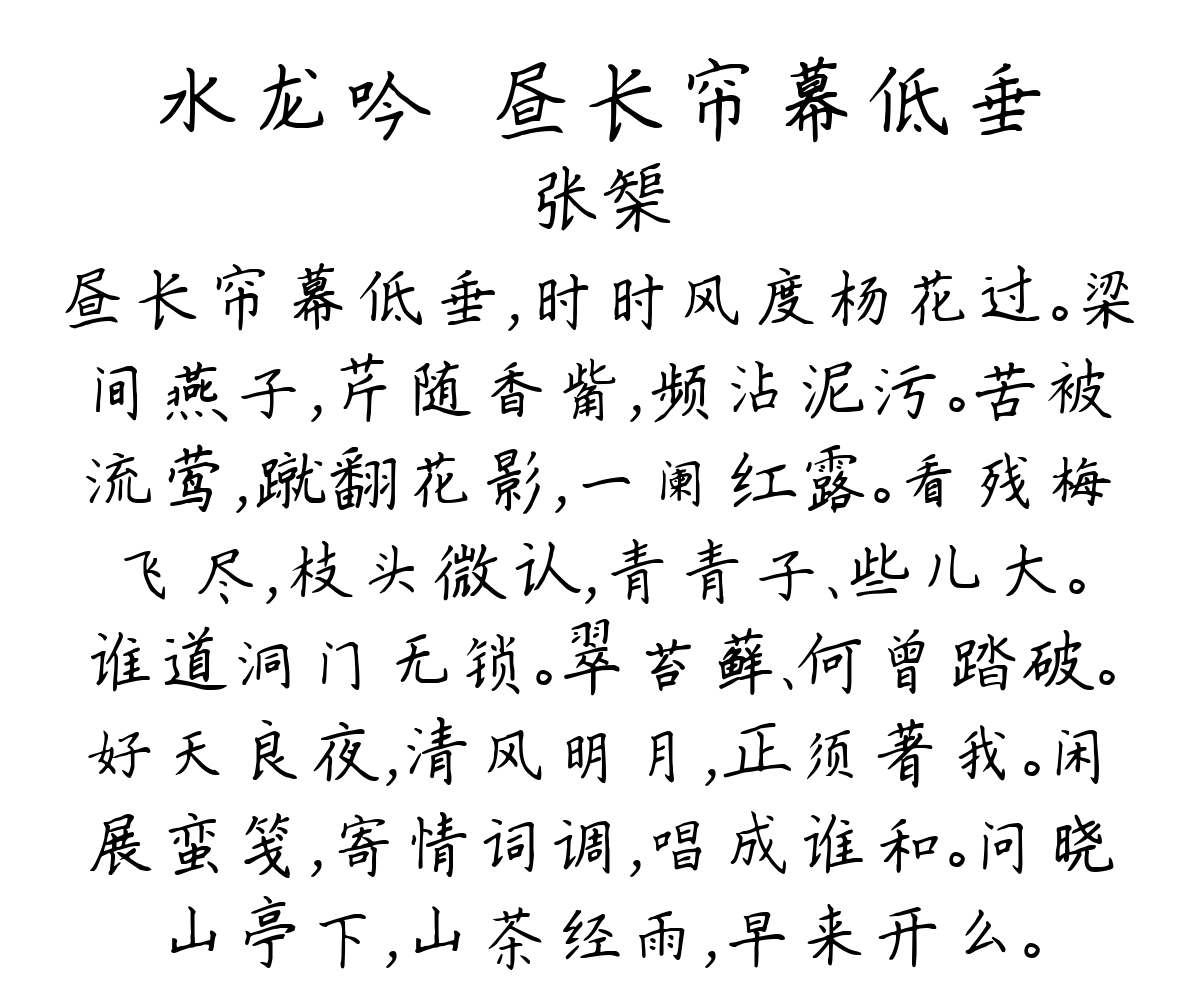 水龙吟 昼长帘幕低垂
张榘
昼长帘幕低垂,时时风度杨花过。梁
间燕子,芹随香觜,频沾泥污。苦被
流莺,蹴翻花影,一阑红露。看残梅
飞尽,枝头微认,青青子、些儿大。
谁道洞门无锁。翠苔藓、何曾踏破。
好天良夜,清风明月,正须著我。闲
展蛮笺,寄情词调,唱成谁和。问晓
山亭下,山茶经雨,早来开么。